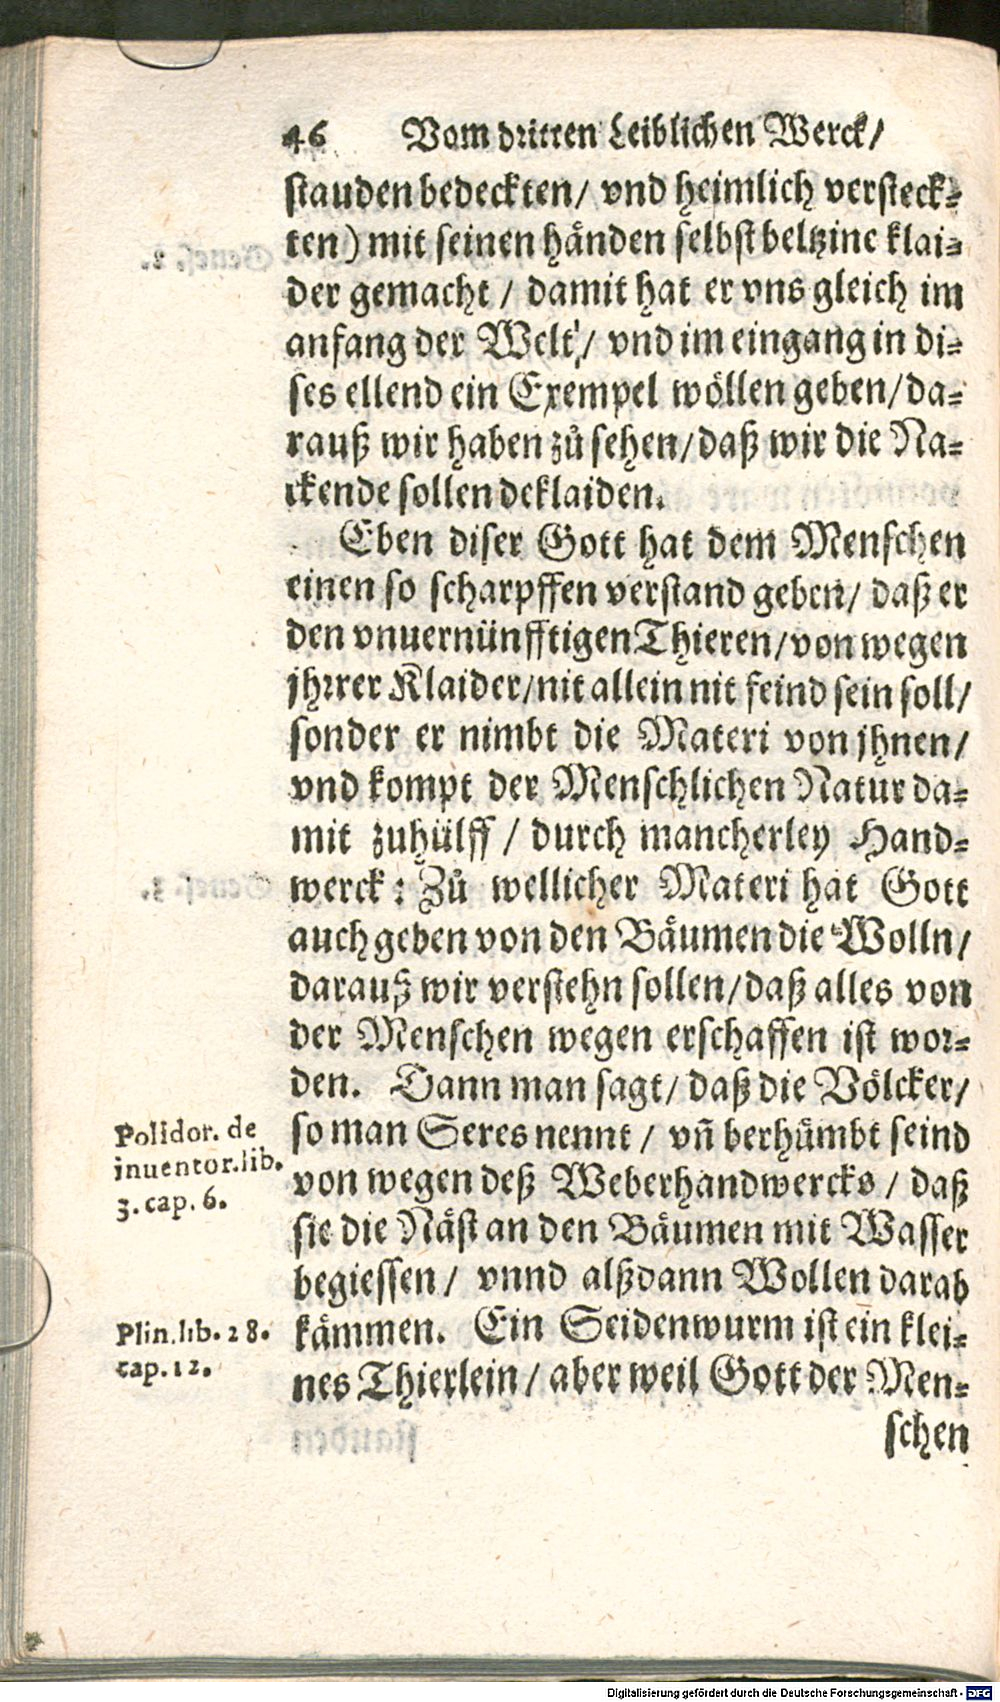 46 Vom dritten Leiblichen Werck/
stauden bedeckten/ vnd heimlich versteck-
ten) mit seinen händen selbst beltzine klai-
der gemacht / damit hat er vns gleich im
anfang der Welt/ vnd im eingang in di-
ses ellend ein Exempel wöllen geben/ da-
rauß wir haben zů sehen/ daß wir die Na-
ckende sollen deklaiden.
Eben diser Gott hat dem Menschen
einen so scharpffen verstand geben/ daß er
den vnuernünfftigen Thieren/ von wegen
jhrer Klaider/ nit allein nit feind sein soll/
sonder er nimbt die Materi von jhnen/
vnd kompt der Menschlichen Natur da-
mit zuhülff / durch mancherley Hand-
werck: Zů wellicher Materi hat Gott
auch geben von den Bäumen die Wolln/
darauß wir verstehn sollen/ daß alles von
der Menschen wegen erschaffen ist wor-
den. Dann man sagt/ daß die Völcker/
Polidor. de
inuentor. lib.
3. cap. 6.
so man Seres nennt / vñ berhümbt seind
von wegen deß Weberhandwercks / daß
sie die Näst an den Bäumen mit Wasser
begiessen/ vnnd alßdann Wollen darab
Plin. lib. 28.
cap. 12.
kämmen. Ein Seidenwurm ist ein klei-
nes Thierlein/ aber weil Gott der Men-
schen
Digitalisierung gefördert durch die Deutsche Forschungsgemeinschaft - DFG